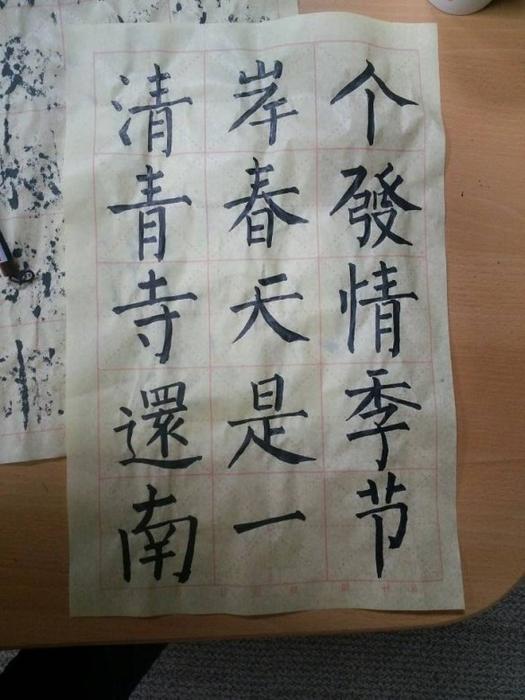 清青寺還南
岸春天是一
个發情季节